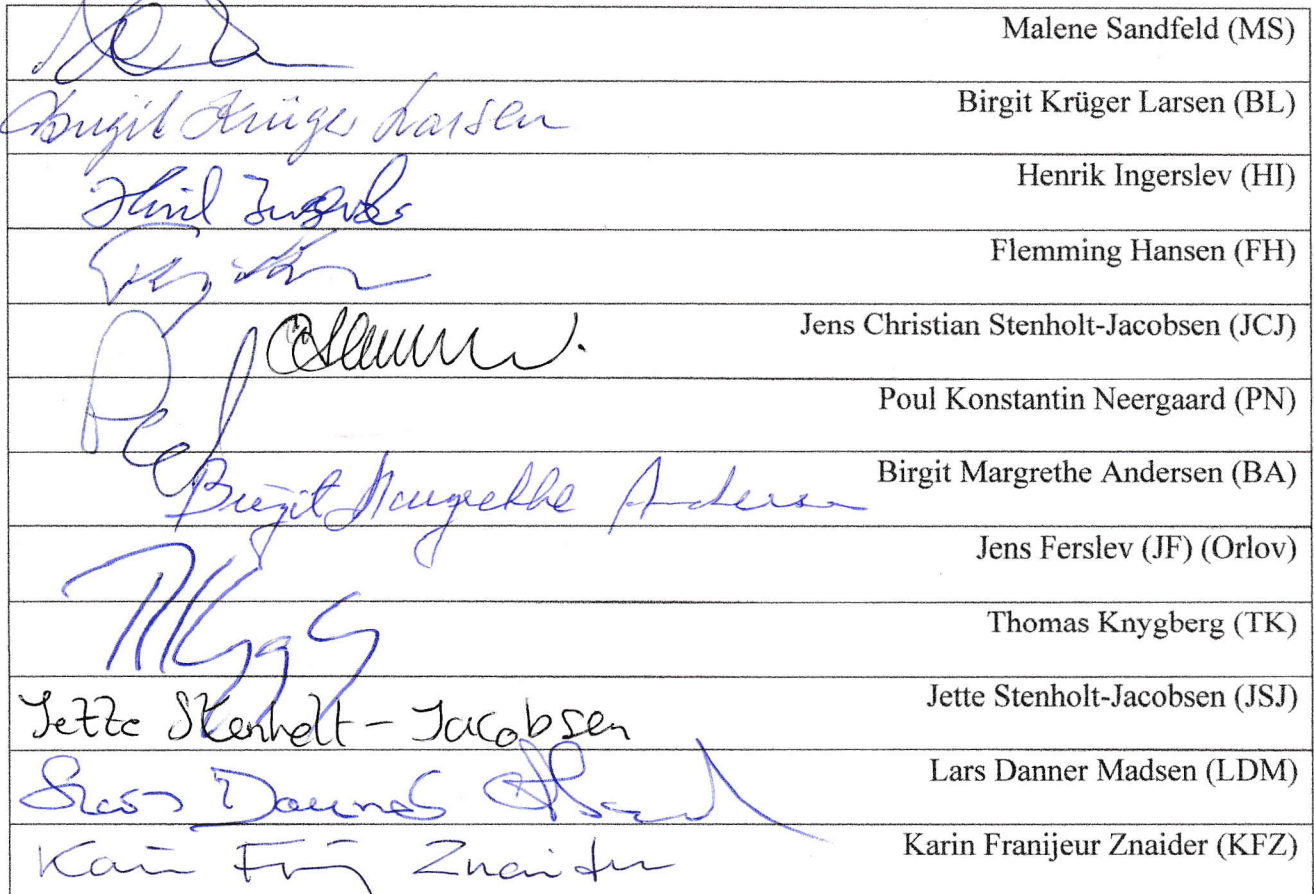 Malene Sandfeld (MS)
Birgit Krüger Larsen Birgit Krüger Larsen (BL)
Henrik Ingerslev (HI)
Flemming Hansen (FH)
Jens Christian Stenholt-Jacobsen (JCJ)
Poul Konstantin Neergaard (PN)
Birgit Margrethe Andersen Birgit Margrethe Andersen (BA)
Jens Ferslev (JF) (Orlov)
Thomas Knygberg (TK)
Jette Stenholt-Jacobsen Jette Stenholt-Jacobsen (JSJ)
Lars Danner Madsen (LDM)
Znaider Karin Franijeur Znaider (KFZ)